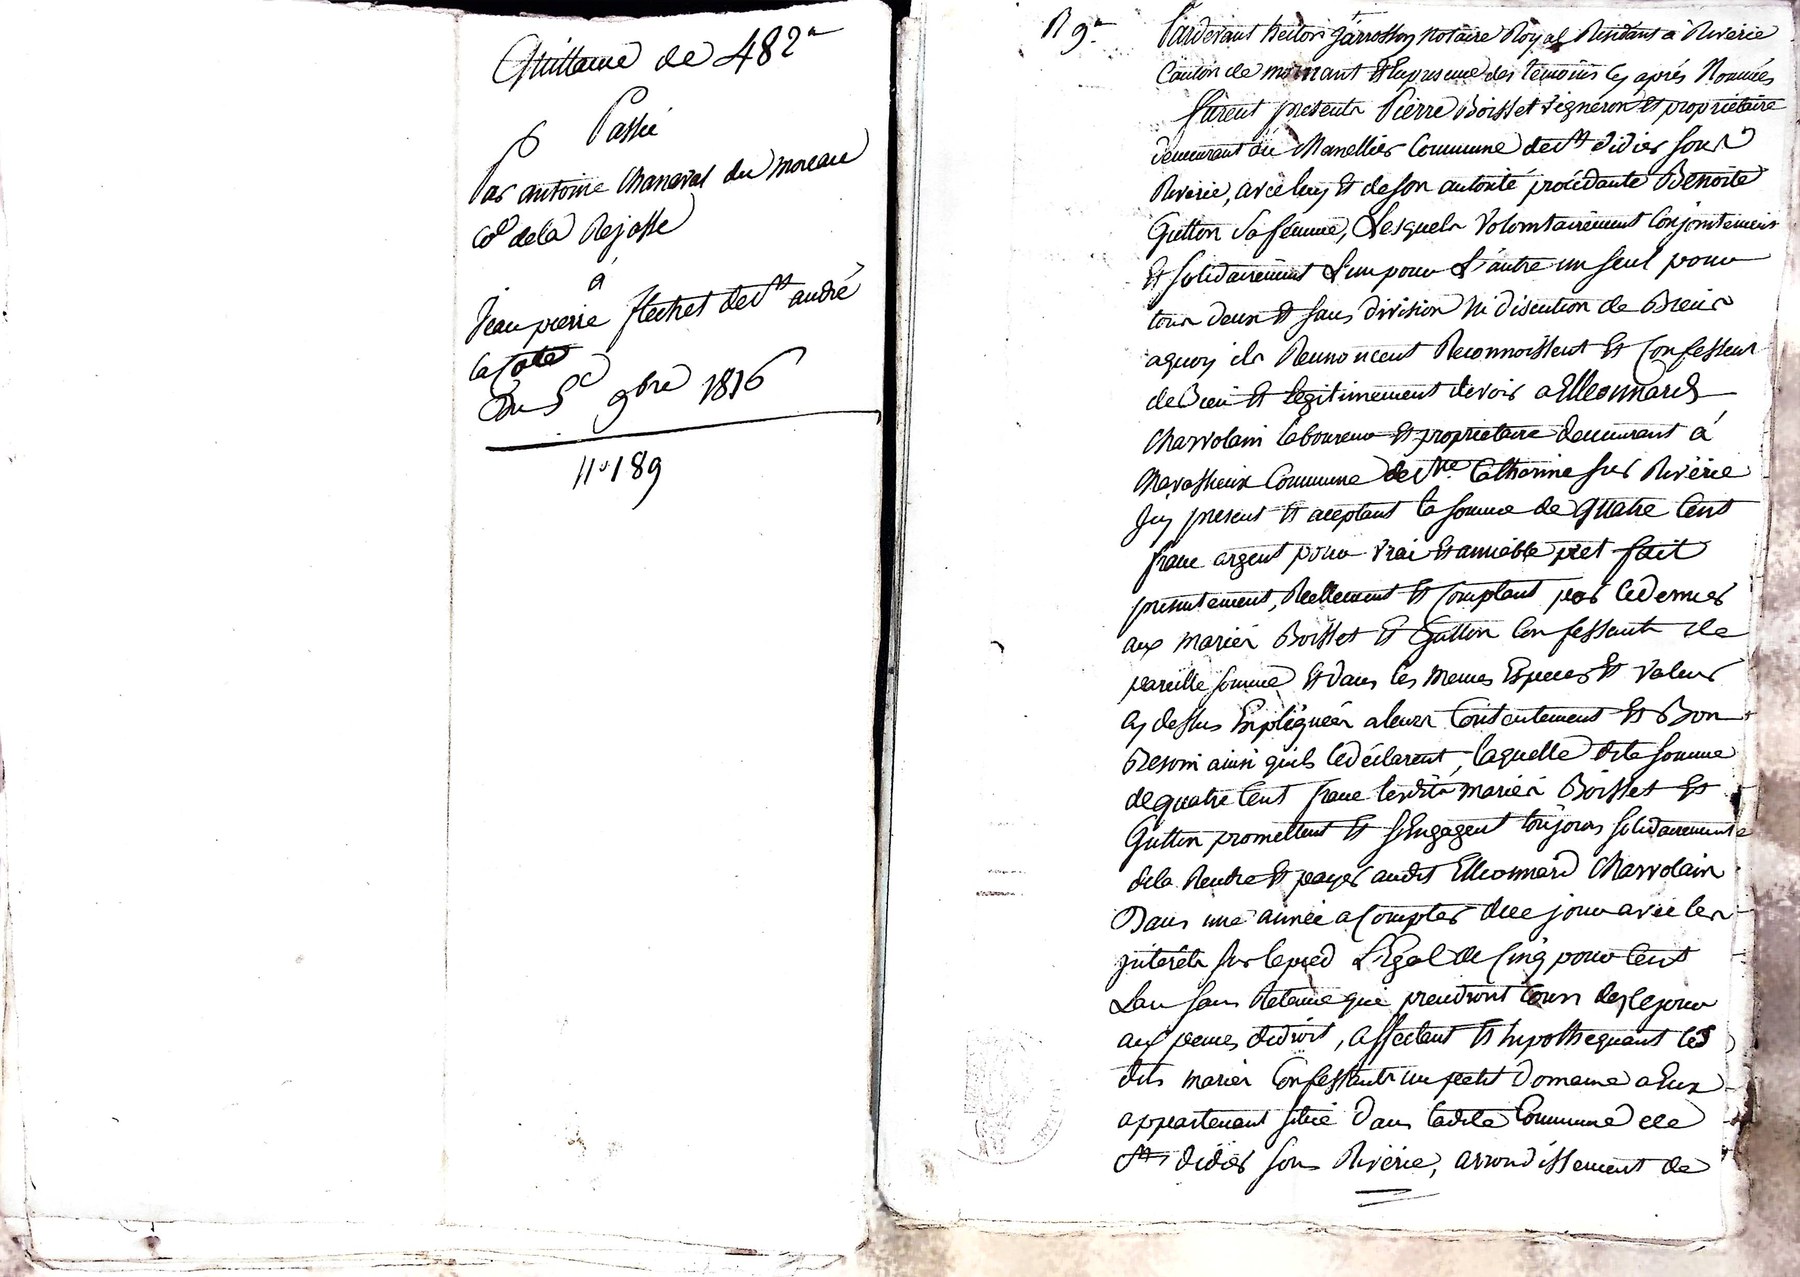 Quittance de 482 #
Passée
Par antoine Chanaval du moreau
Coe de la Rejasse
à
Jean pierre flechet de St andré
la Cote
Du 5e 9bre 1816
No 189
R 9 #
Pardevant hector garrosson Notaire Royal Residant à Riverie
Canton de mornant Et En presence des temoins Cy aprés Nommés
furent presents Pierre Boisset Vigneron Et proprietaire
demeurant au Manellier Commune de St didier sous
Riverie, avec luy Et de son autorité procédante Benoite
Gutton sa femme, Lesquels Volontairement Conjointement
Et solidairement L'un pour L'autre un seul pour
tous deux Et sans division Ni discution de Biens
aquoy ils Renoncent Reconnoissent Et Confessent
de Bien Et legitimement devoir a Elleonnard
Charvolain laboureur Et proprietaire demeurant á
Chavassieux Commune de Ste Catherine sur Riverie
Icy present Et aceptant la somme de quatre Cent
franc argent pour vrai Et amiable pret fait
presentement, Reellement Et Comptant par Cedernier
aux mariés Boisset Et Gutton Confessants de
pareille somme Et dans les memes Especes Et valeur
Cy dessus Expliquées a leurs Contentement Et Bon
Besoin ainsi quils le déclarent, laquelle dite somme
de quatre Cent franc lesdits mariés Boisset Et
Gutton promettent Et s'Engagent toujours solidairement
de la Rendre Et payer audit Elleonnard Charvolain
Dans une année a Compter de ce jour avec les
interêts sur le pied L'Egal de Cinq pour Cent
L'an sans Retenue qui prendront Cours des ce jour
aux peines de droit, affectant Et hypothequant les
dits mariés Confessants un petit Domaine a Eux
appartenant situé Dans ladite Commune de
St didier sous Riverie, arrondissement de